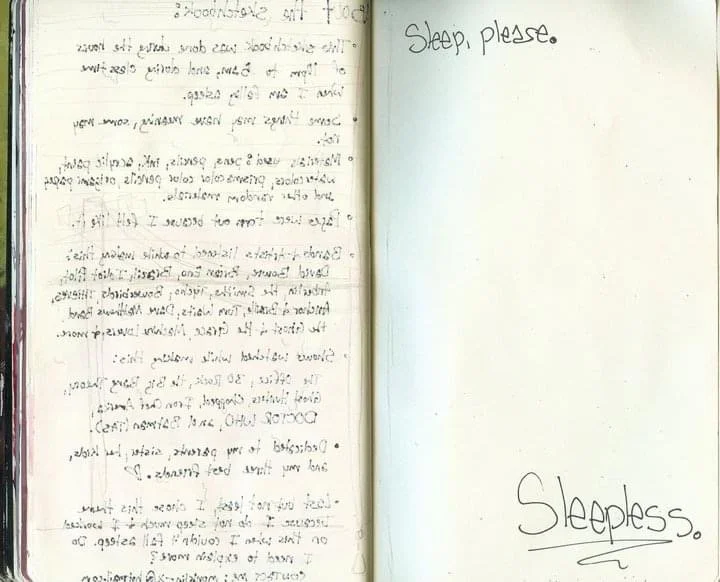 About the sketchbook:
• This sketchbook was done during the hours
of 11pm to 5am, and during class time
when I am fally asleep.
• Some things may have meaning, some may
not.
• Materials used: pens, pencils, ink, acrylic paint,
watercolors, prismacolor color pencils, origami paper,
and other random materials.
• Pages were torn out because I felt like it.
• Bands & Artists listened to while making this:
David Bowie, Brian Eno, Brazil, Idiot Pilot,
Anberlin, the Smiths, Tycho, Bowerbirds, Thieves,
Anchor & Braille, Tom Waits, Dave Mathews Band,
the Ghost & the Grace, Machine Lovers, & more.
• Shows watched while making this:
The Office, 30 Rock, the Big Bang Theory,
Ghost Hunters, Chopped, Iron Chef America,
DOCTOR WHO, and Batman (TAS).
• Dedicated to my parents, sister, her kids,
and my three best friends.
• Last but not least, I chose this theme
because I do not sleep much & I worked
on this when I couldn't fall asleep. Do
I need to explain more?
contact me:
Sleep, please.
Sleepless.